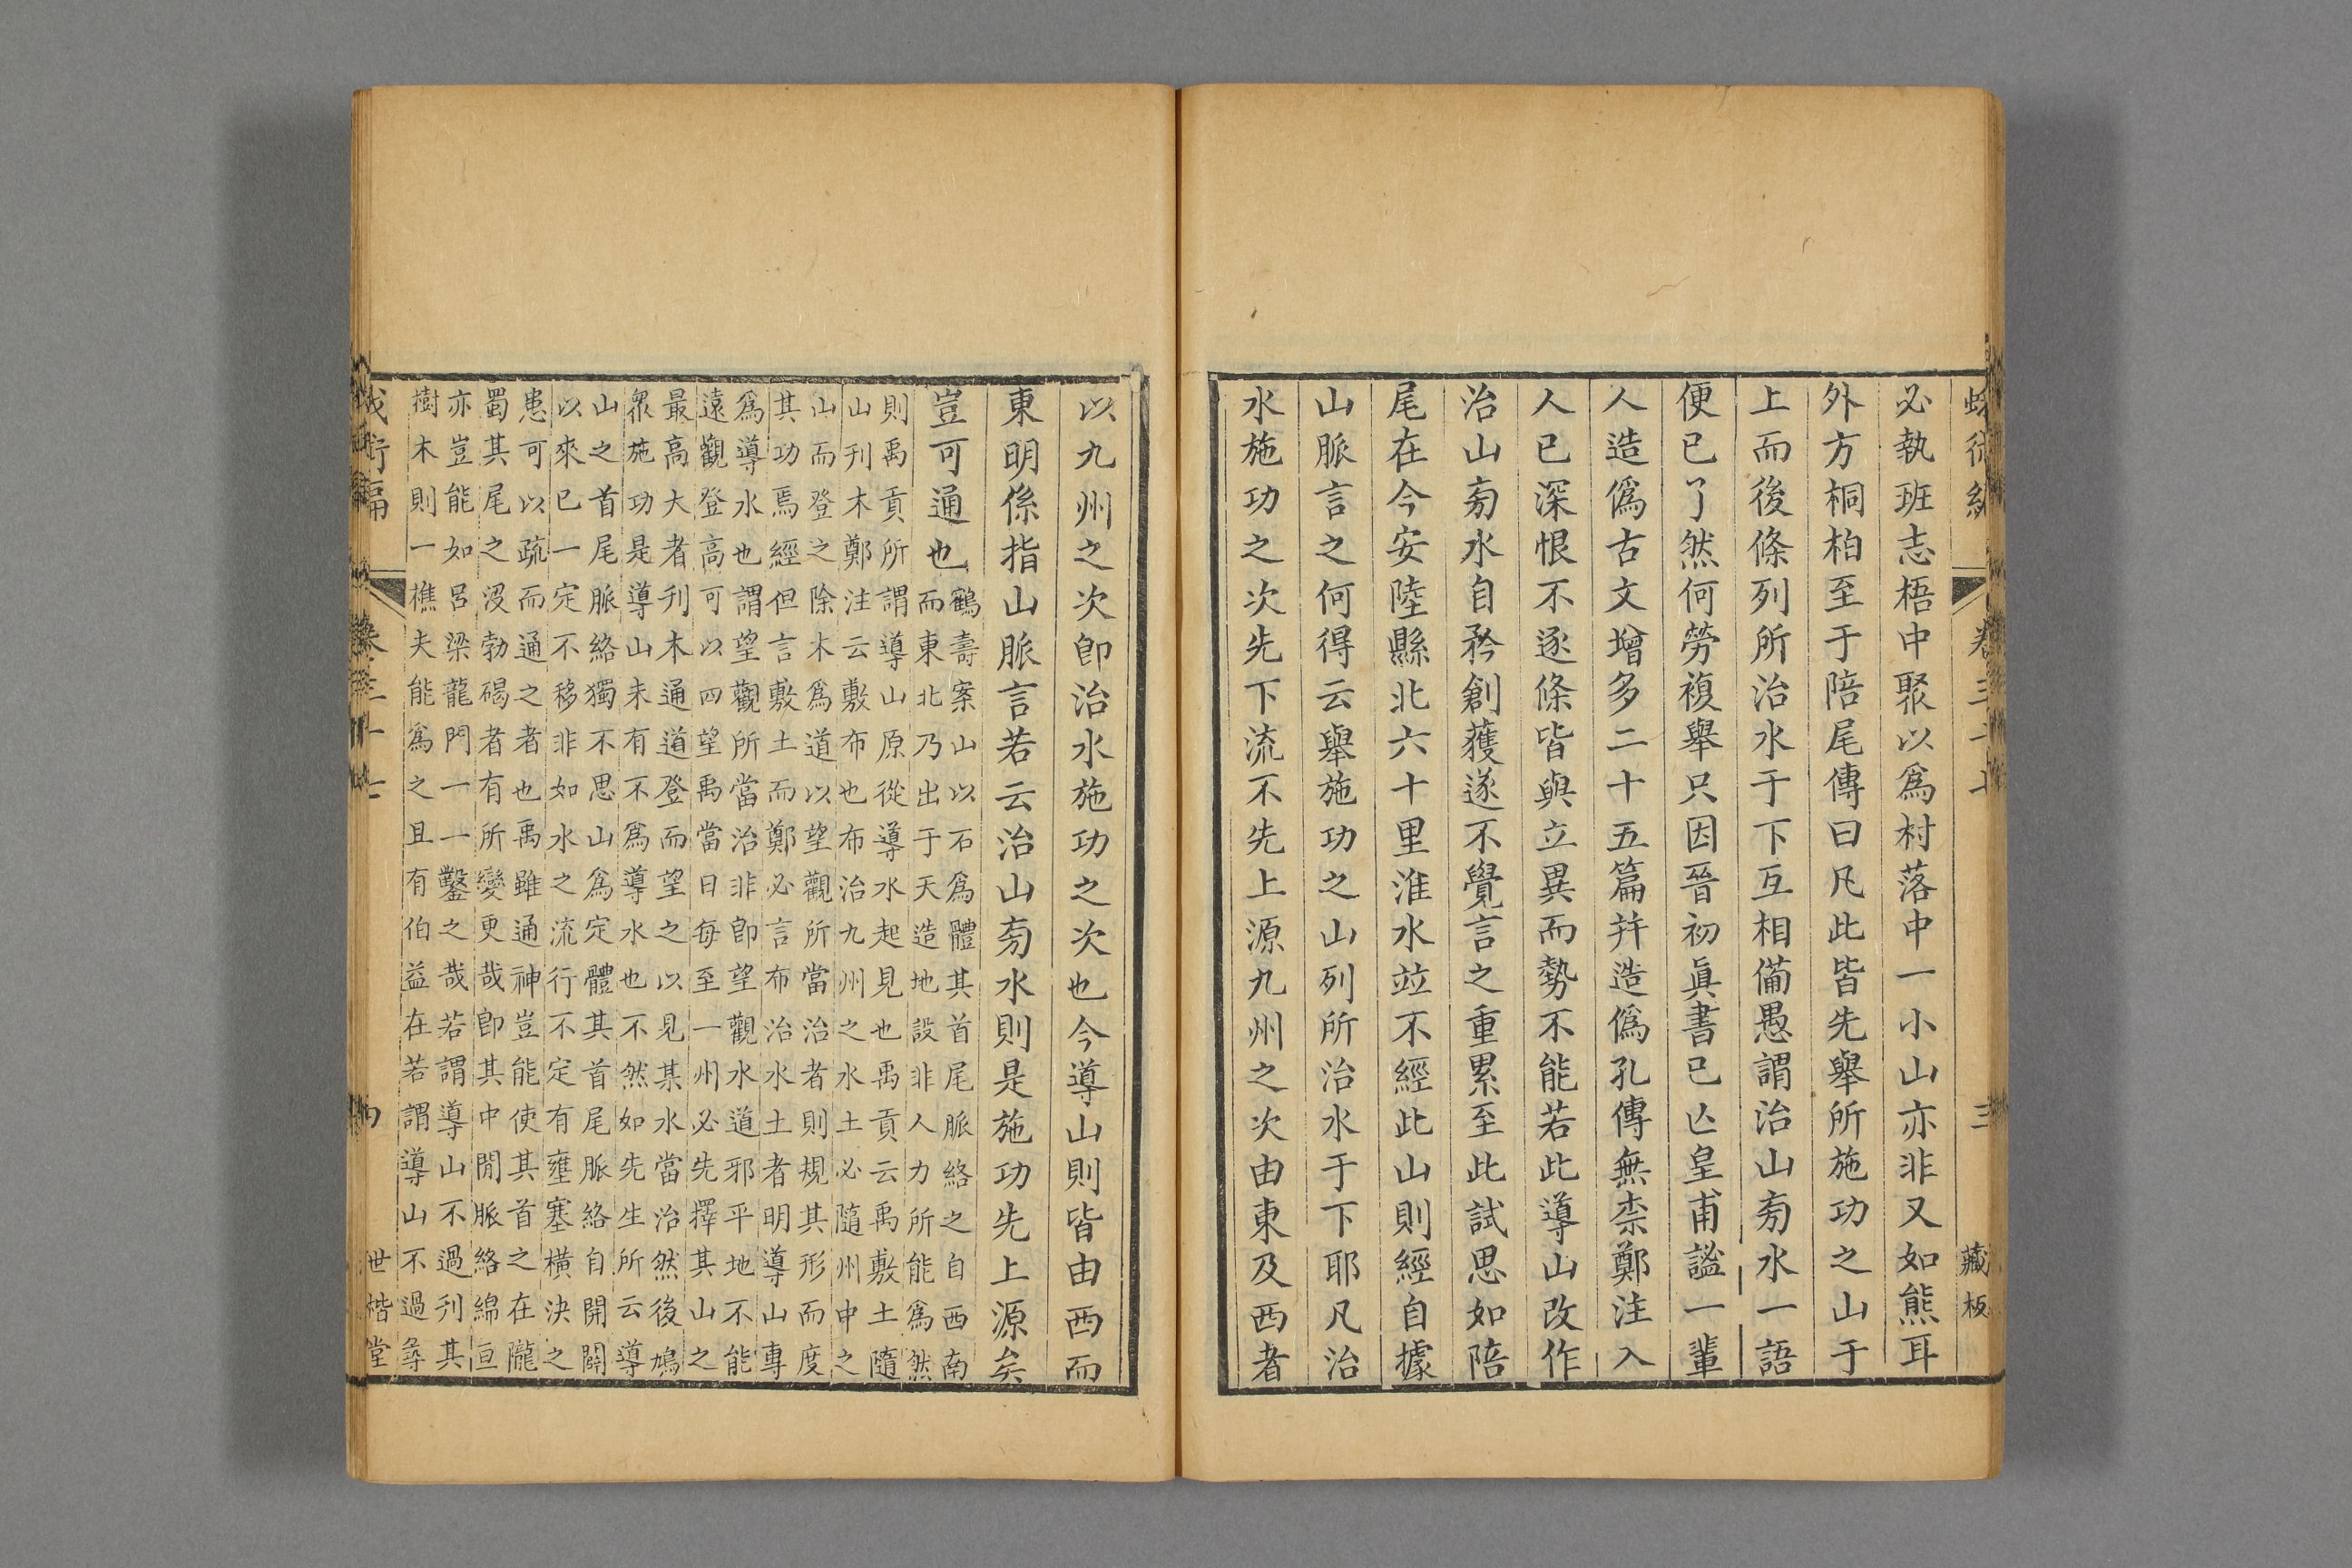 必執班志梧中聚以爲村落中一小山亦非又如熊耳
外方桐柏至于陪尾傳曰凡此皆先舉所施功之山于
上而後條列所治水于下互相僃愚謂治山㫄水一語
便已了然何勞複舉只因晉初眞書已亾皇甫謐一輩
人造僞古文增多二十五篇幷造僞孔傳無柰鄭注入
人已深恨不逐條皆與立異而勢不能若此導山改作
治山㫄水自矜創獲遂不覺言之重累至此試思如陪
尾在今安陸縣北六十里淮水竝不經此山則經自據
山脈言之何得云舉施功之山列所治水于下耶凡治
水施功之次先下流不先上源九州之次由東及西者
以九州之次卽治水施功之次也今導山則皆由西而
東明係指山脈言若云治山㫄水則是施功先上源矣
豈可通也
鶴壽案山以石爲體其首尾脈絡之自西南
而東北乃出于天造地設非人力所能爲然
則禹貢所謂導山原從導水起見也禹貢云禹敷土隨
山刋木鄭注云敷布也布治九州之水土必隨州中之
山而登之除木爲道以望觀所當治者則規其形而度
其功焉經但言敷土而鄭必言布治水土者明導山專
爲導水也謂望觀所當治非卽望觀水道邪平地不能
遠觀登高可以四望禹當日每至一州必先擇其山之
最高大者刋木通道登而望之以見某水當治然後鳩
衆施功是導山未有不爲導水也不然如先生所云導
山之首尾脈絡獨不思山爲定體其首尾脈絡自開闢
以來已一定不移非如水之流行不定有壅塞橫決之
患可以疏而通之者也禹雖通神豈能使其首之在隴
蜀其尾之沒勃碣者有所變更哉卽其中閒脈絡綿亘
亦豈能如呂梁龍門一一鑿之哉若謂導山不過刋其
樹木則一樵夫能爲之且有伯益在若謂導山不過尋
世楷堂
藏板